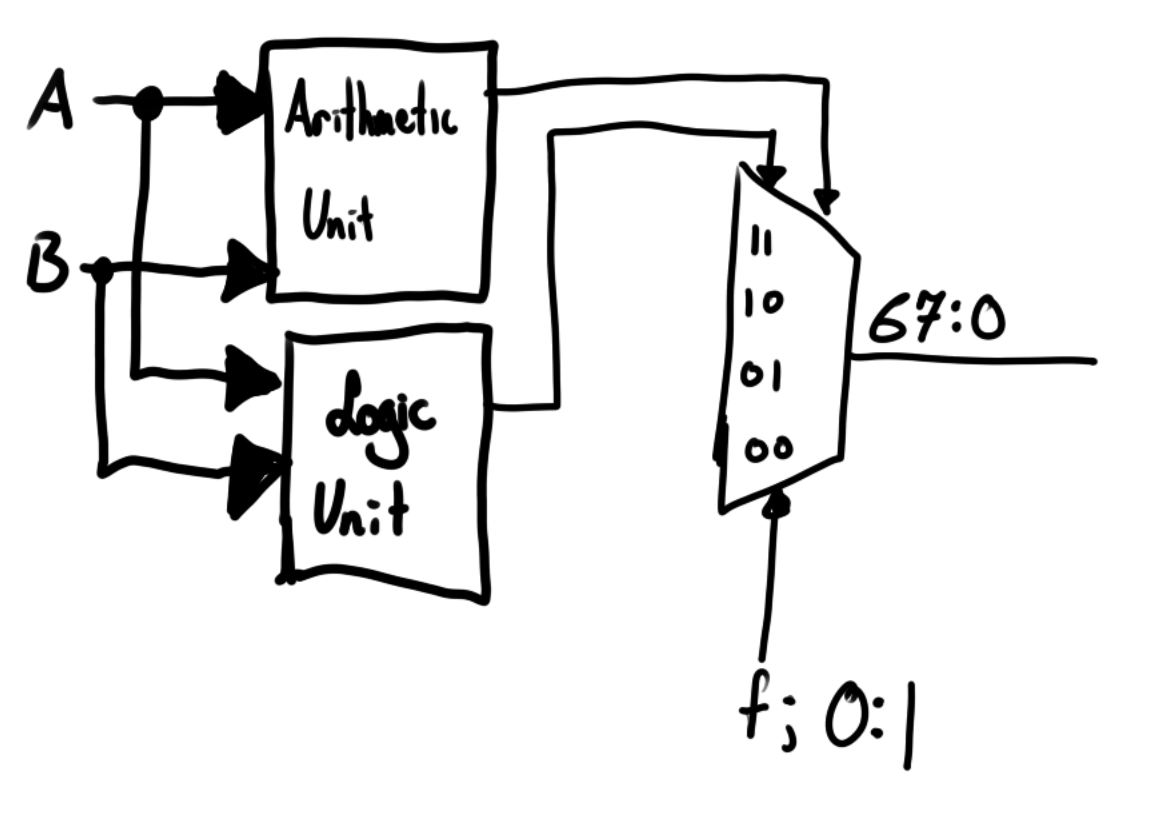 A
Arithmetic
Unit
B
Logic
Unit
11
10
01
00
67:0
f; 0:1